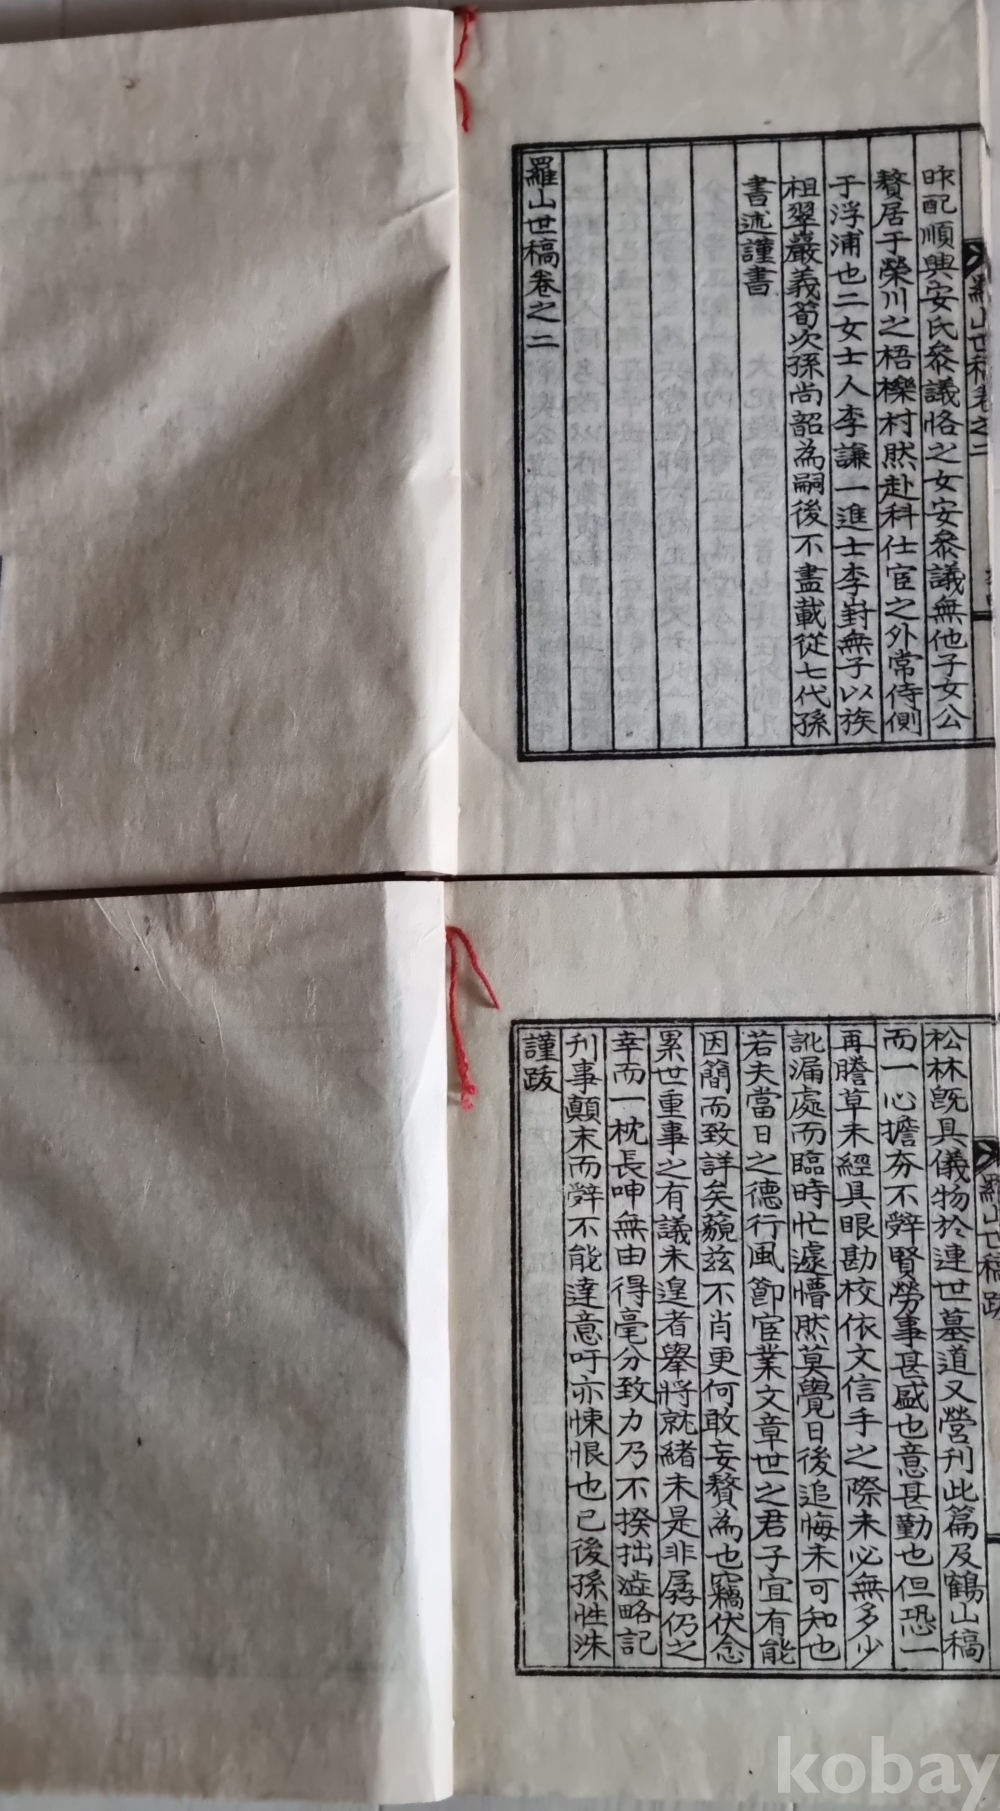 羅山世稿卷之二
昨配順興安氏叅議恪之女安叅議無他子女公
贅居于榮川之梧櫟村然赴科仕宦之外常侍側
于浮浦也二女士人李謙一進士李崶無子以族
祖翠巖義筍次孫尚韶為嗣後不盡載從七代孫
書述謹書
羅山世稿卷之二
羅山世稿跋
松林旣具儀物於連世墓道又營刊此篇及鶴山稿
而一心擔夯不辤賢勞事甚盛也意甚勤也但恐一
再謄草未經具眼勘校依文信手之際未必無多少
訛漏處而臨時忙遽懵然莫覺日後追悔未可知也
若夫當日之德行風節宦業文章世之君子宜有能
因簡而致詳矣藐玆不肖更何敢妄贅為也竊伏念
累世重事之有議未遑者擧將就緖未是非孱仍之
幸而一枕長呻無由得毫分致力乃不揆拙澁略記
刋事顛末而辤不能達意吁亦悚恨也已後孫性洙
謹跋
kobay